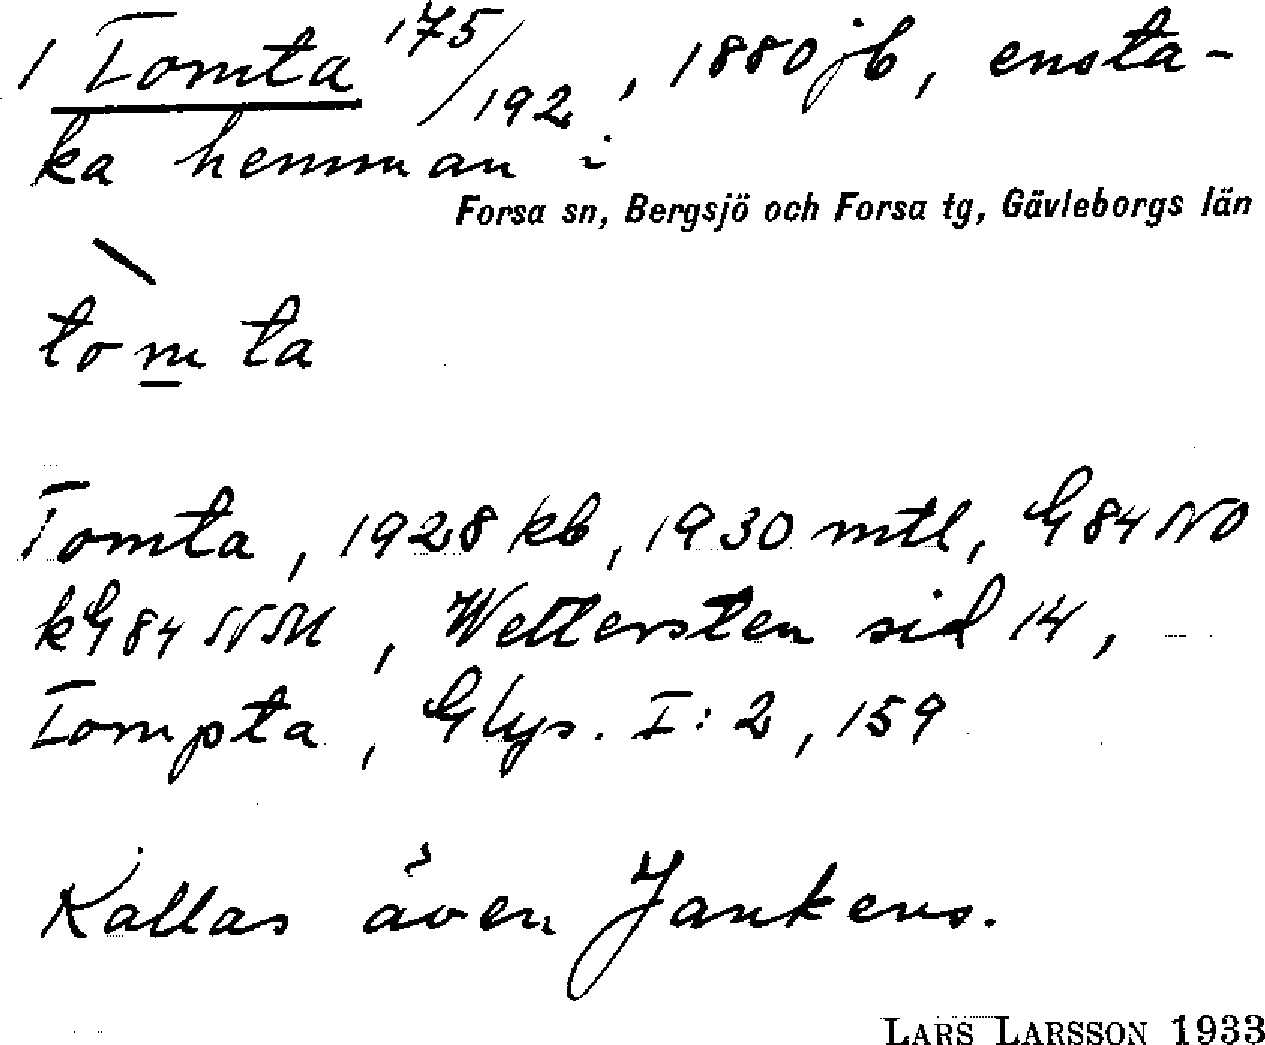 1 Tomta 175/192, 1880 jb, ensta-
ka hemman i
Forsa sn, Bergsjö och Forsa tg, Gävleborgs län
tomta
Tomta, 1928 kb, 1930 mtl, G 84 NO
kG 84 NM, Wettersten sid 14,
Tompta, Glys. I: 2, 159
Kallas även Jankens.
LARS LARSSON 1933